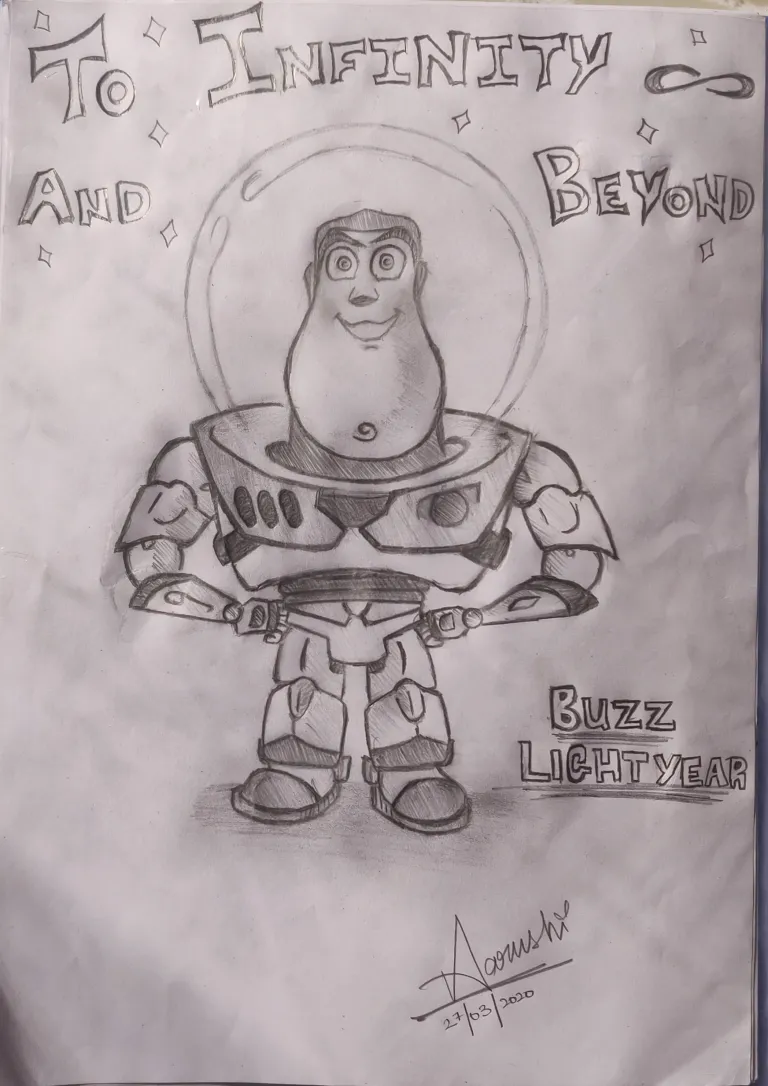 To INFINITY ∞
AND BEYOND
BUZZ
LIGHTYEAR
Aarushi
27/03/2020